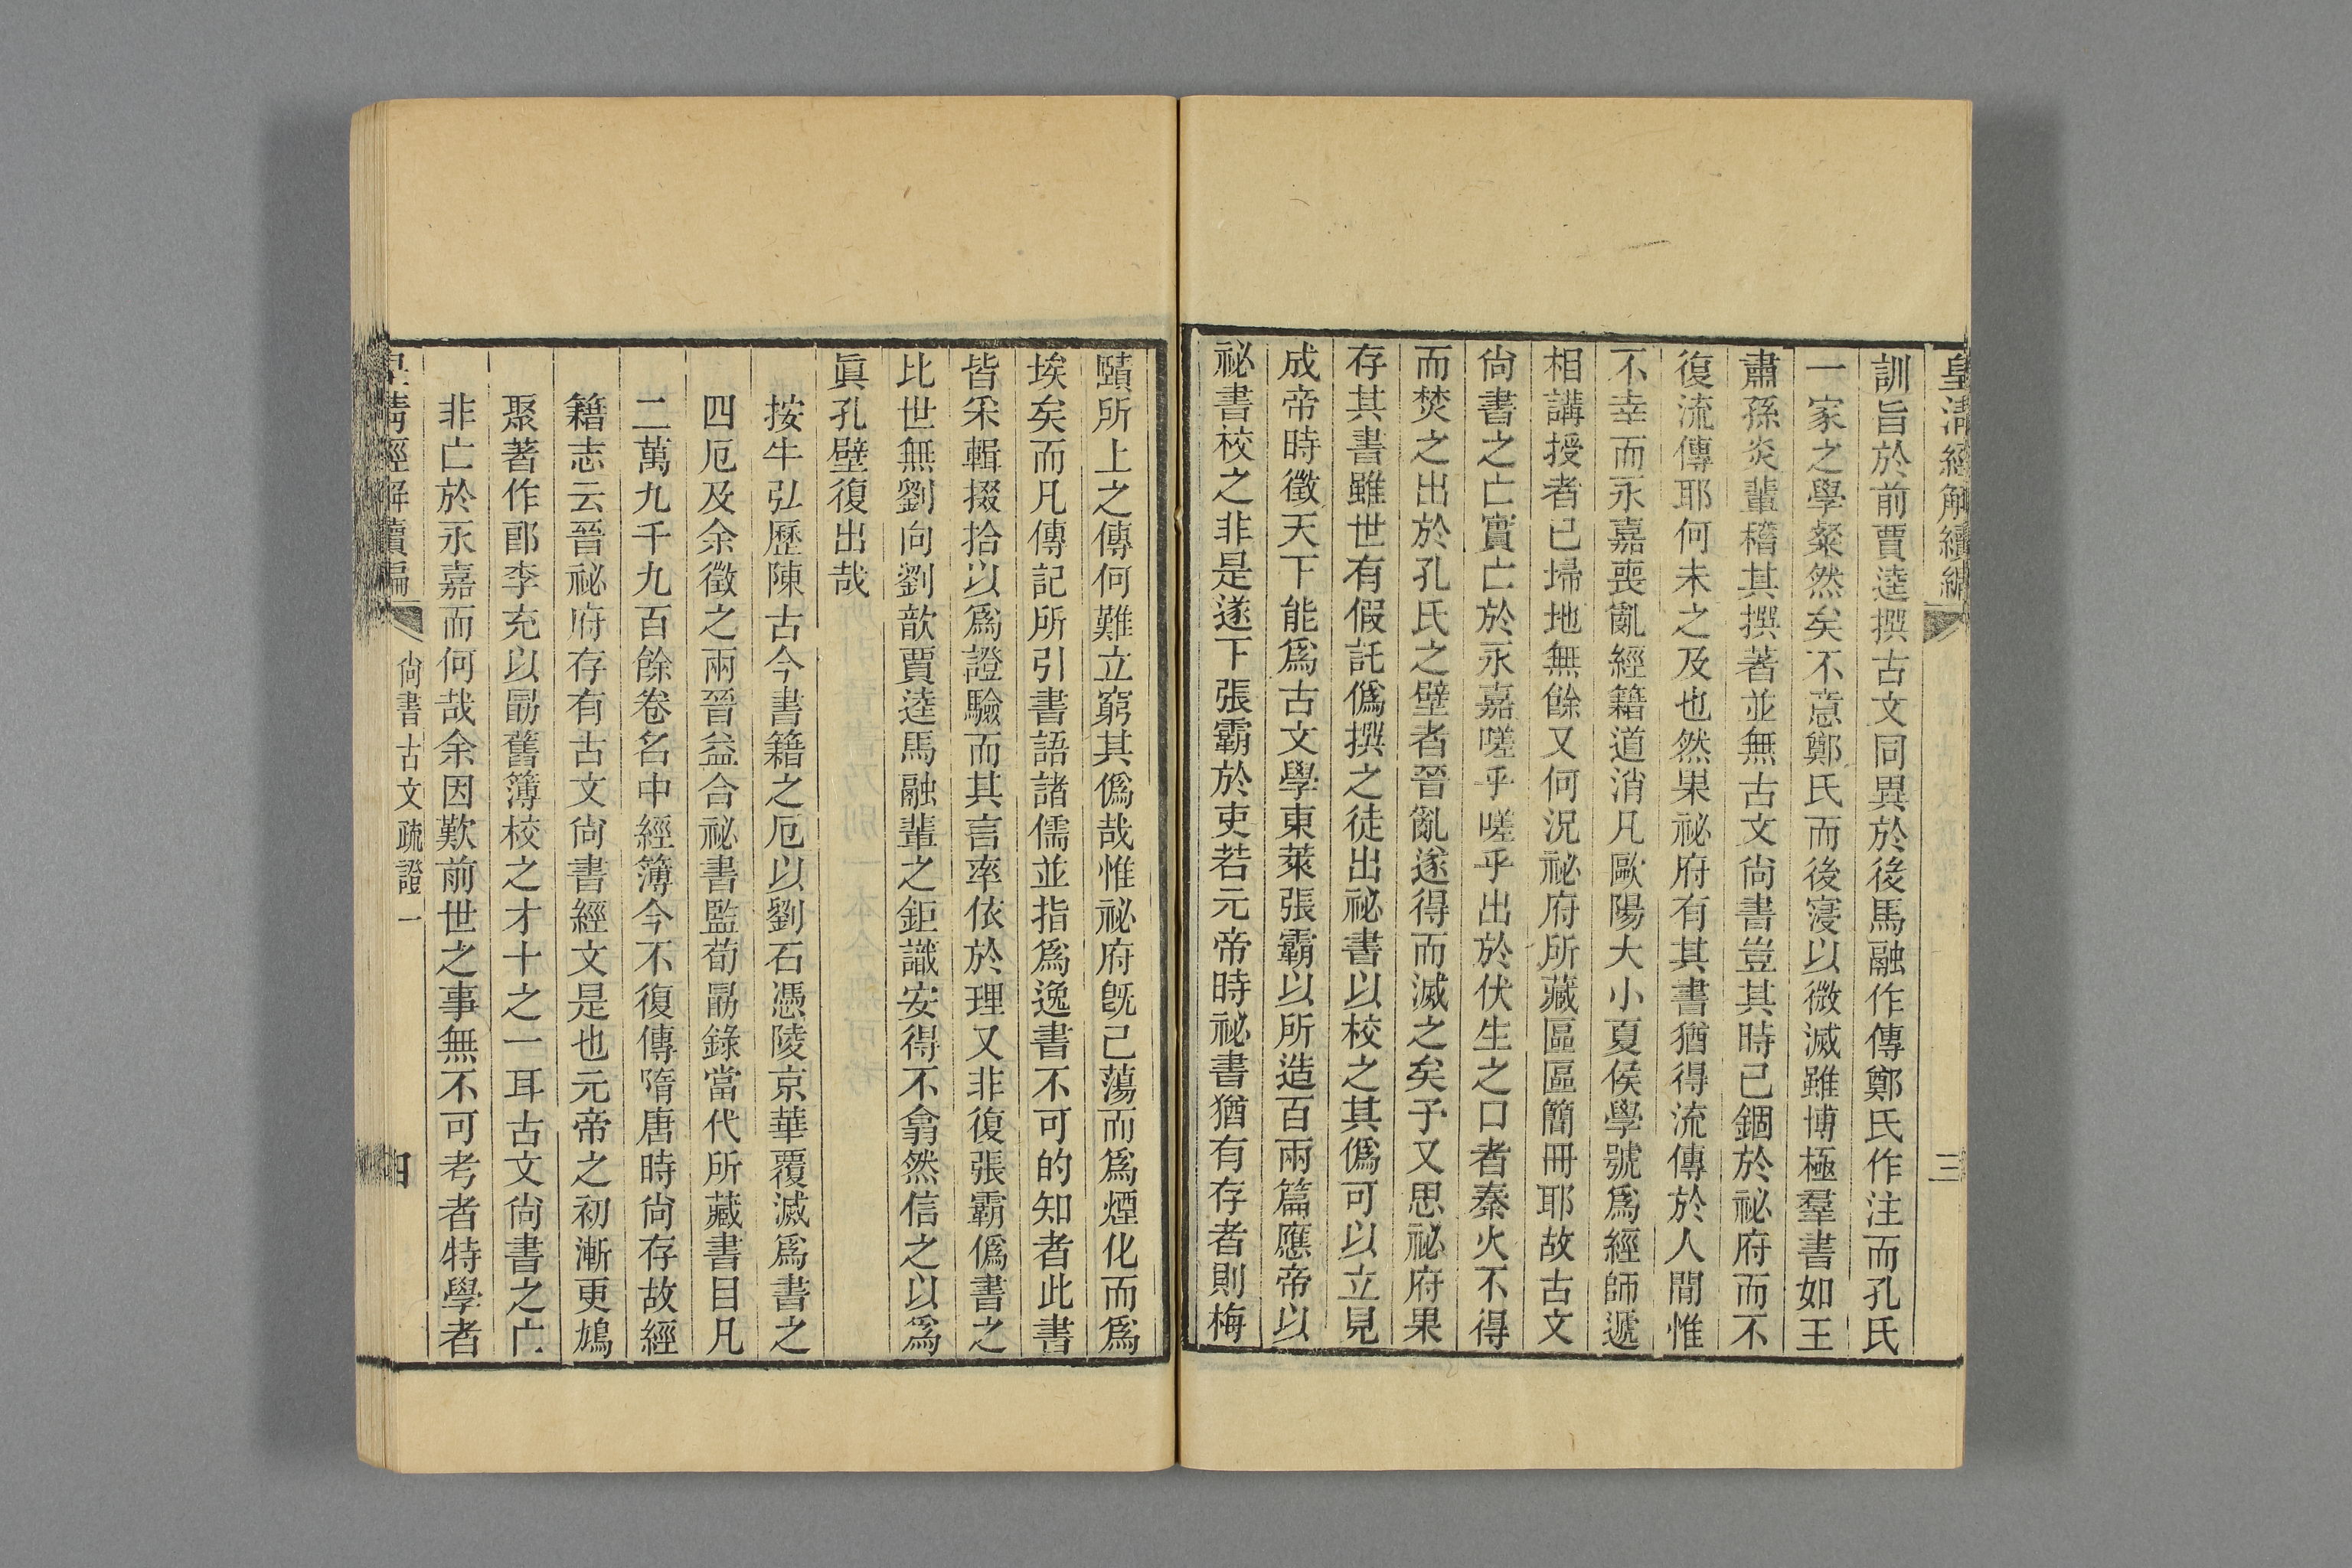 皇清經解續編
三
訓旨於前賈逵撰古文同異於後馬融作傳鄭氏作注而孔氏
一家之學粲然矣不意鄭氏而後寖以微滅雖博極羣書如王
肅孫炎輩稽其撰著並無古文尙書豈其時已錮於祕府而不
復流傳耶何未之及也然果祕府有其書猶得流傳於人間惟
不幸而永嘉喪亂經籍道消凡歐陽大小夏侯學號爲經師遞
相講授者已埽地無餘又何況祕府所藏區區簡冊耶故古文
尙書之亡實亡於永嘉嗟乎嗟乎出於伏生之口者秦火不得
而焚之出於孔氏之壁者晉亂遂得而滅之矣予又思祕府果
存其書雖世有假託僞撰之徒出祕書以校之其僞可以立見
成帝時徵天下能爲古文學東萊張霸以所造百兩篇應帝以
祕書校之非是遂下張霸於吏若元帝時祕書猶有存者則梅
賾所上之傳何難立窮其僞哉惟祕府旣已蕩而爲煙化而爲
埃矣而凡傳記所引書語諸儒並指爲逸書不可的知者此書
皆采輯掇拾以爲證驗而其言率依於理又非復張霸僞書之
比世無劉向劉歆賈逵馬融輩之鉅識安得不翕然信之以爲
眞孔壁復出哉
按牛弘歷陳古今書籍之厄以劉石憑陵京華覆滅爲書之
四厄及余徵之兩晉益合祕書監荀勗錄當代所藏書目凡
二萬九千九百餘卷名中經簿今不復傳隋唐時尙存故經
籍志云晉祕府存有古文尙書經文是也元帝之初漸更鳩
聚著作郎李充以勗舊簿校之才十之一耳古文尙書之亡
非亡於永嘉而何哉余因歎前世之事無不可考者特學者
皇清經解續編
尙書古文疏證一
四